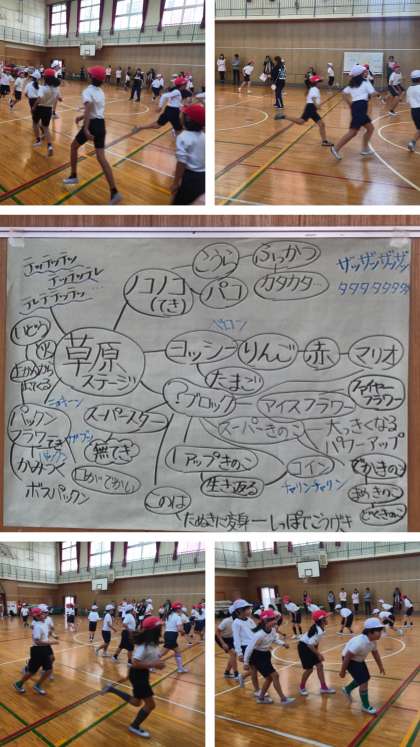 テッテッテッ
テッテッテレ
テレテッテッ…
草原
ステージ
ノコノコ
(てき)
こうら
パコ
ふっかつ
カタカタ…
ザッザッザッザッ
タタタタタタタ
ペロン
ヨッシー
りんご
赤
マリオ
たまご
?ブロック
アイスフラワー
ファイヤー
フラワー
スーパーきのこ
大っきくなる
パワーアップ
スーパースター
無てき
1アップきのこ
生き返る
コイン
チャリンチャリン
このは
たぬきに変身
しっぽでこうげき
どかんから
出てくる
パックン
フラワー
てき
パックン
かみつく
ボスパックン
口がでかい
でかきのこ
どくきのこ